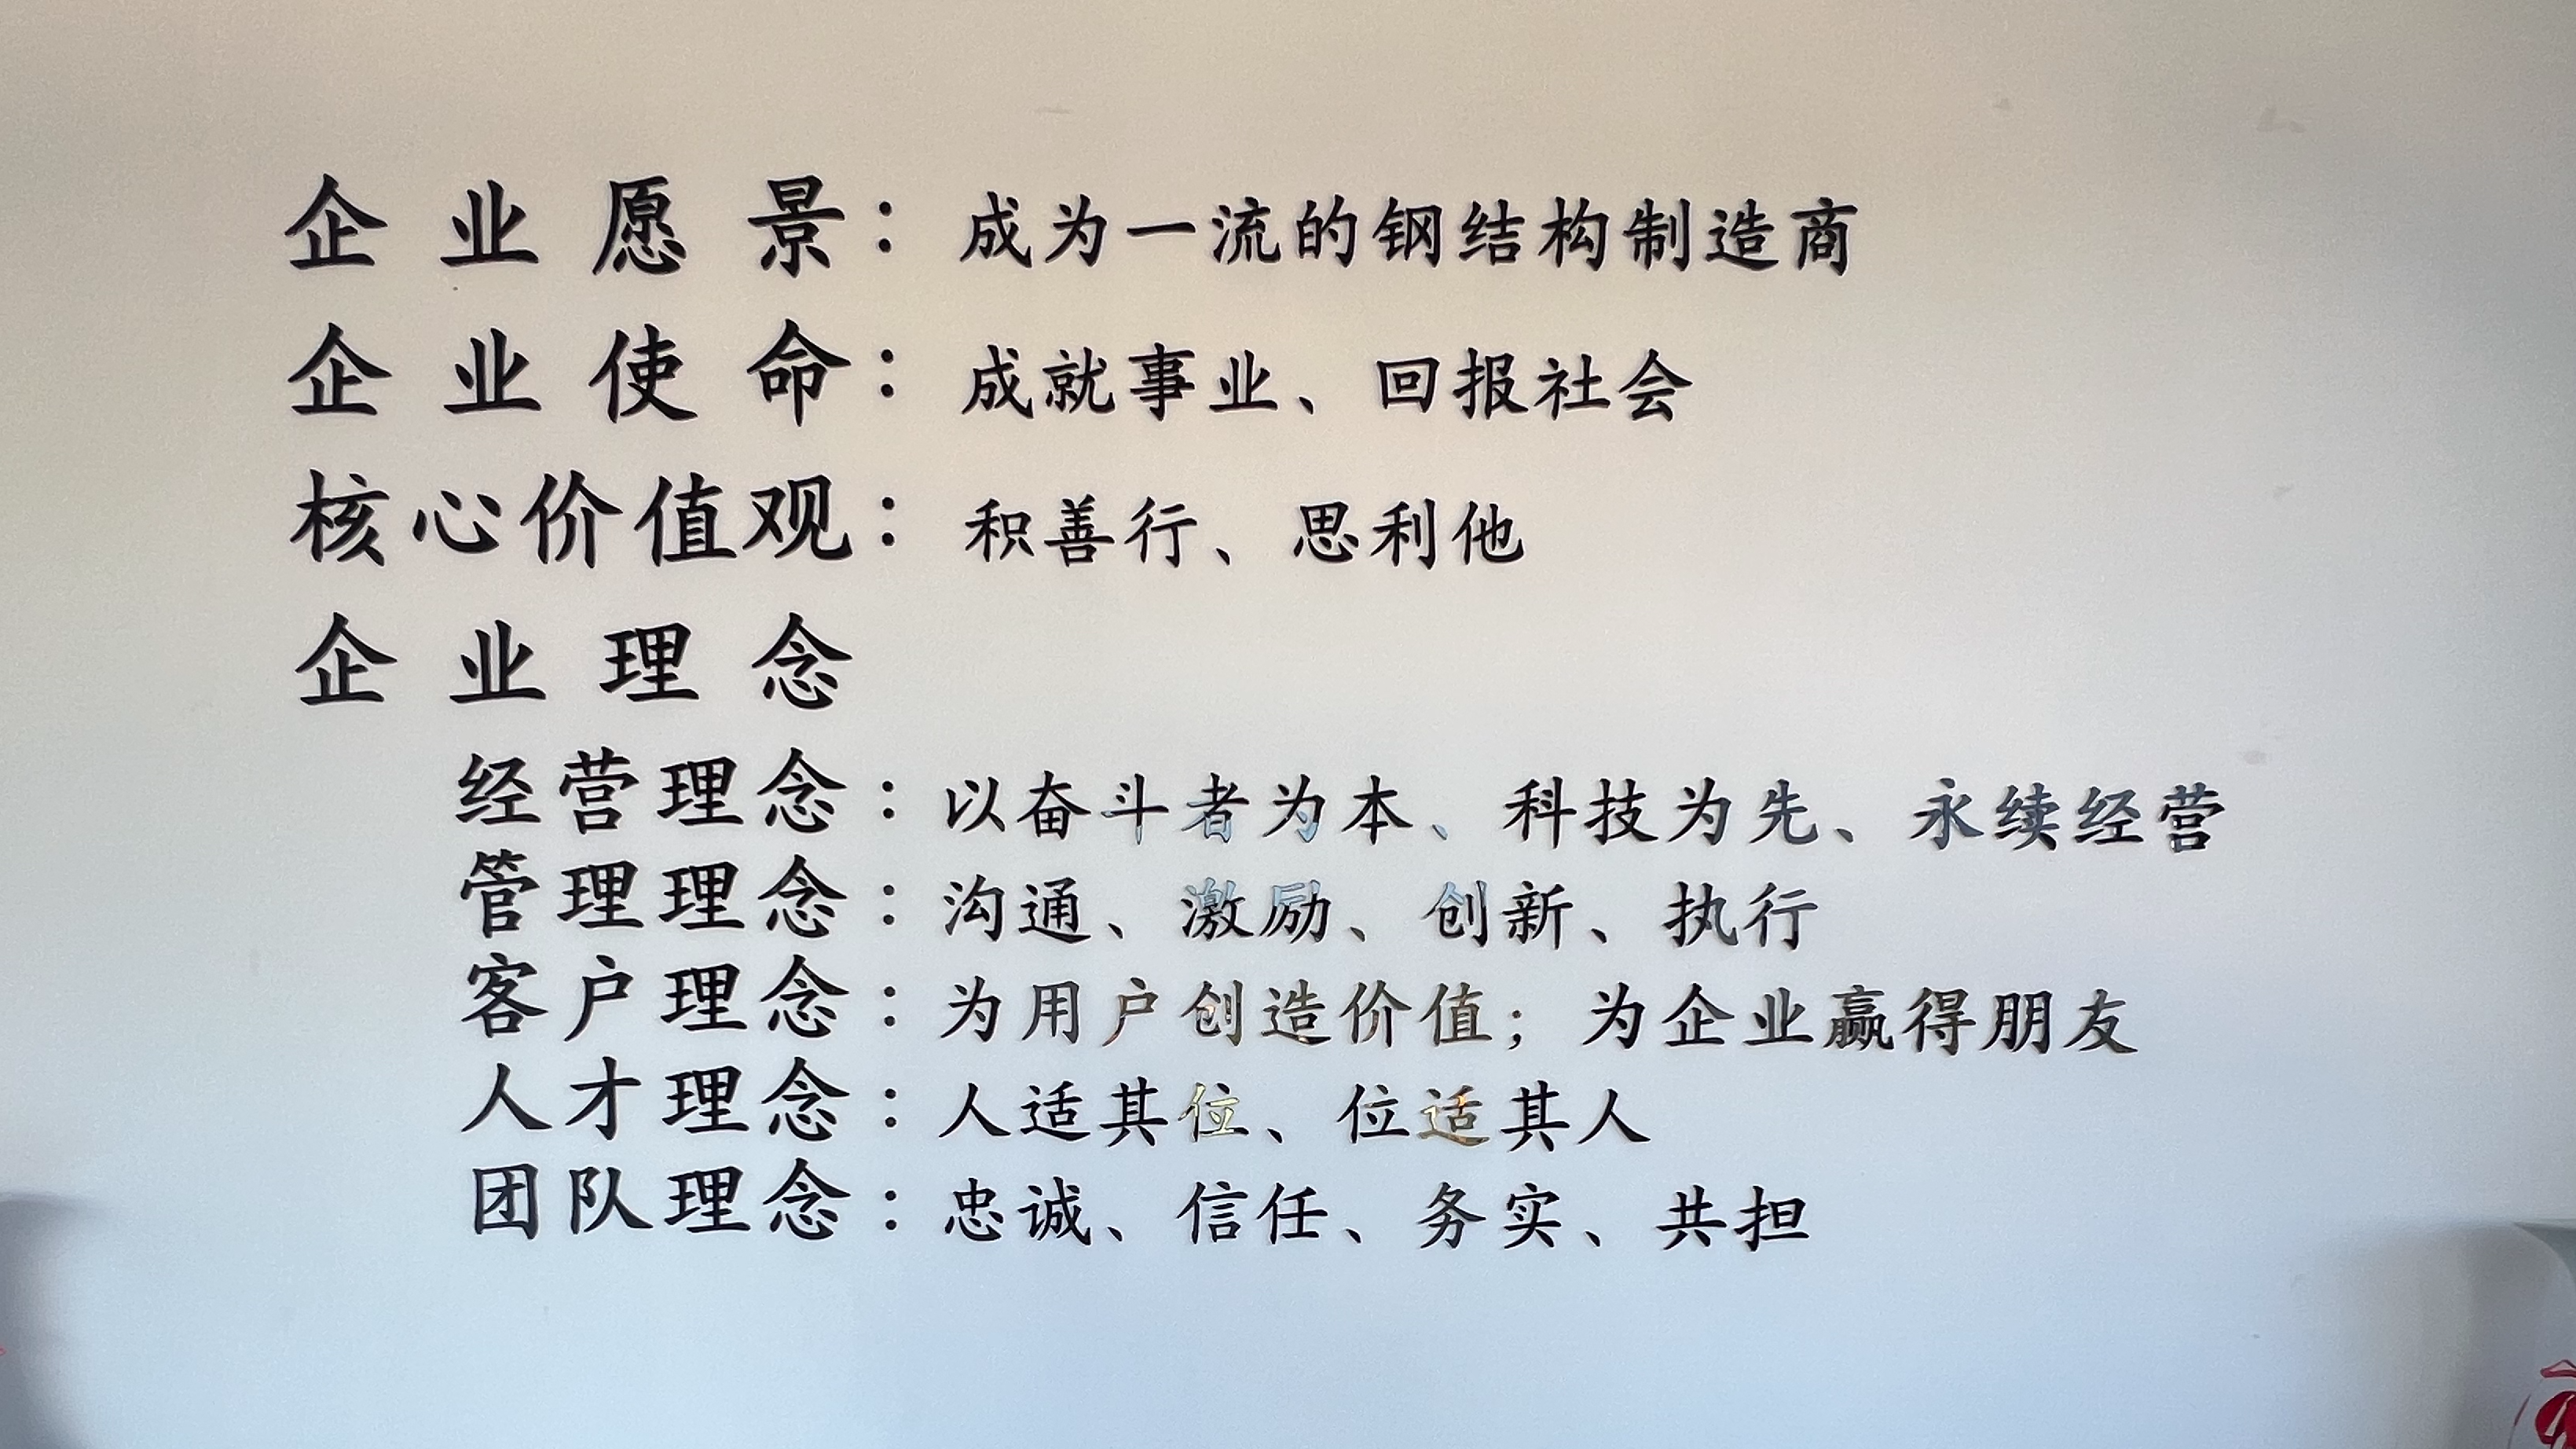 企业愿景：成为一流的钢结构制造商
企业使命：成就事业、回报社会
核心价值观：积善行、思利他
企业理念
经营理念：以奋斗者为本、科技为先、永续经营
管理理念：沟通、激励、创新、执行
客户理念：为用户创造价值；为企业赢得朋友
人才理念：人适其位、位适其人
团队理念：忠诚、信任、务实、共担